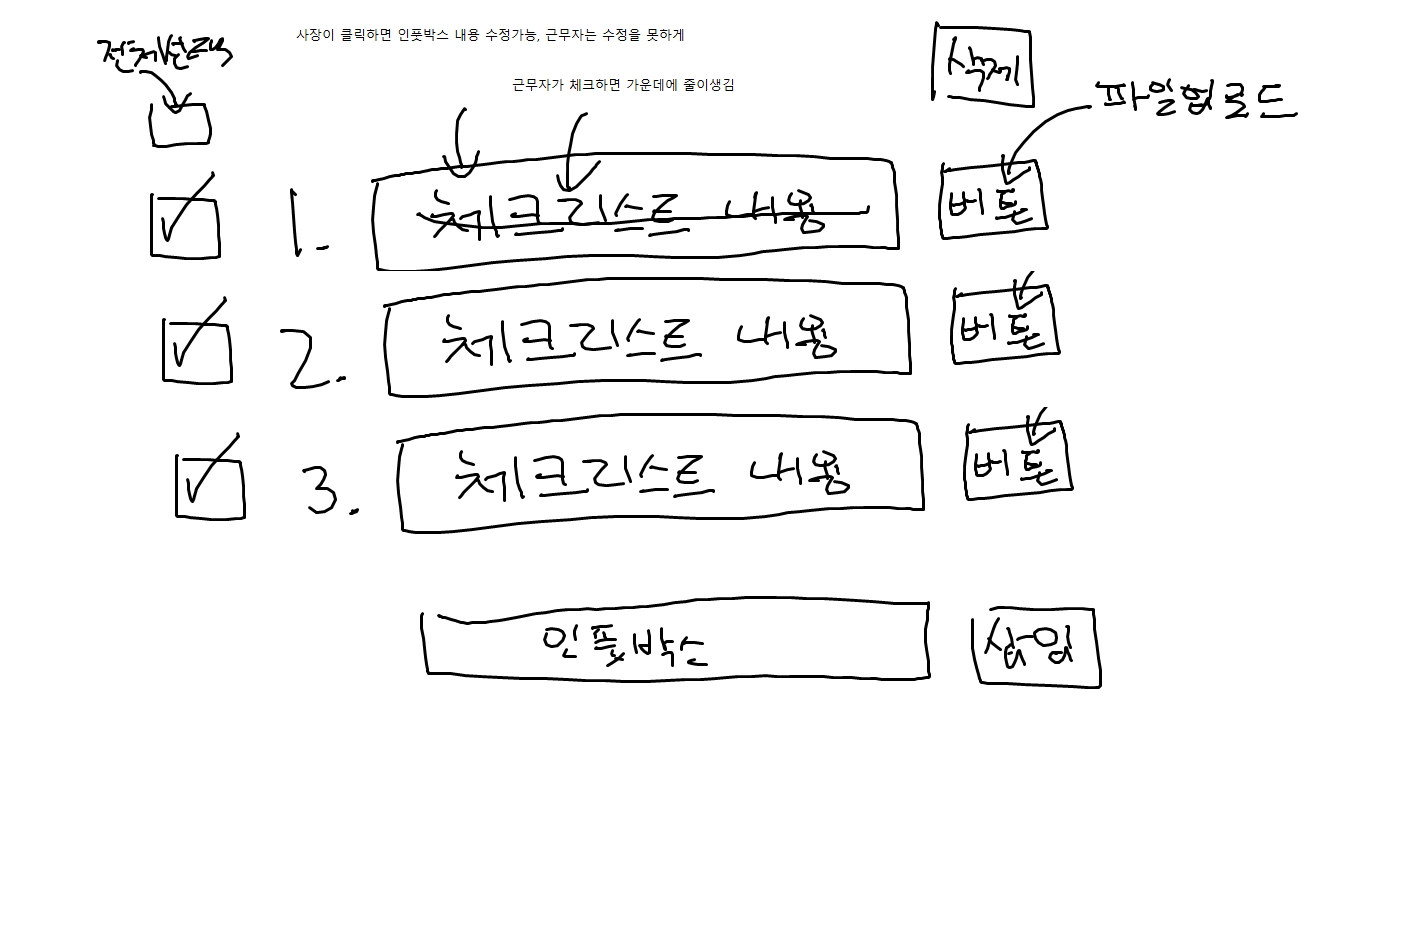 사장이 클릭하면 인풋박스 내용 수정가능, 근무자는 수정을 못하게
전체선택
삭제
근무자가 체크하면 가운데에 줄이생김
파일업로드
1. 체크리스트 내용 버튼
2. 체크리스트 내용 버튼
3. 체크리스트 내용 버튼
인풋박스 삽입